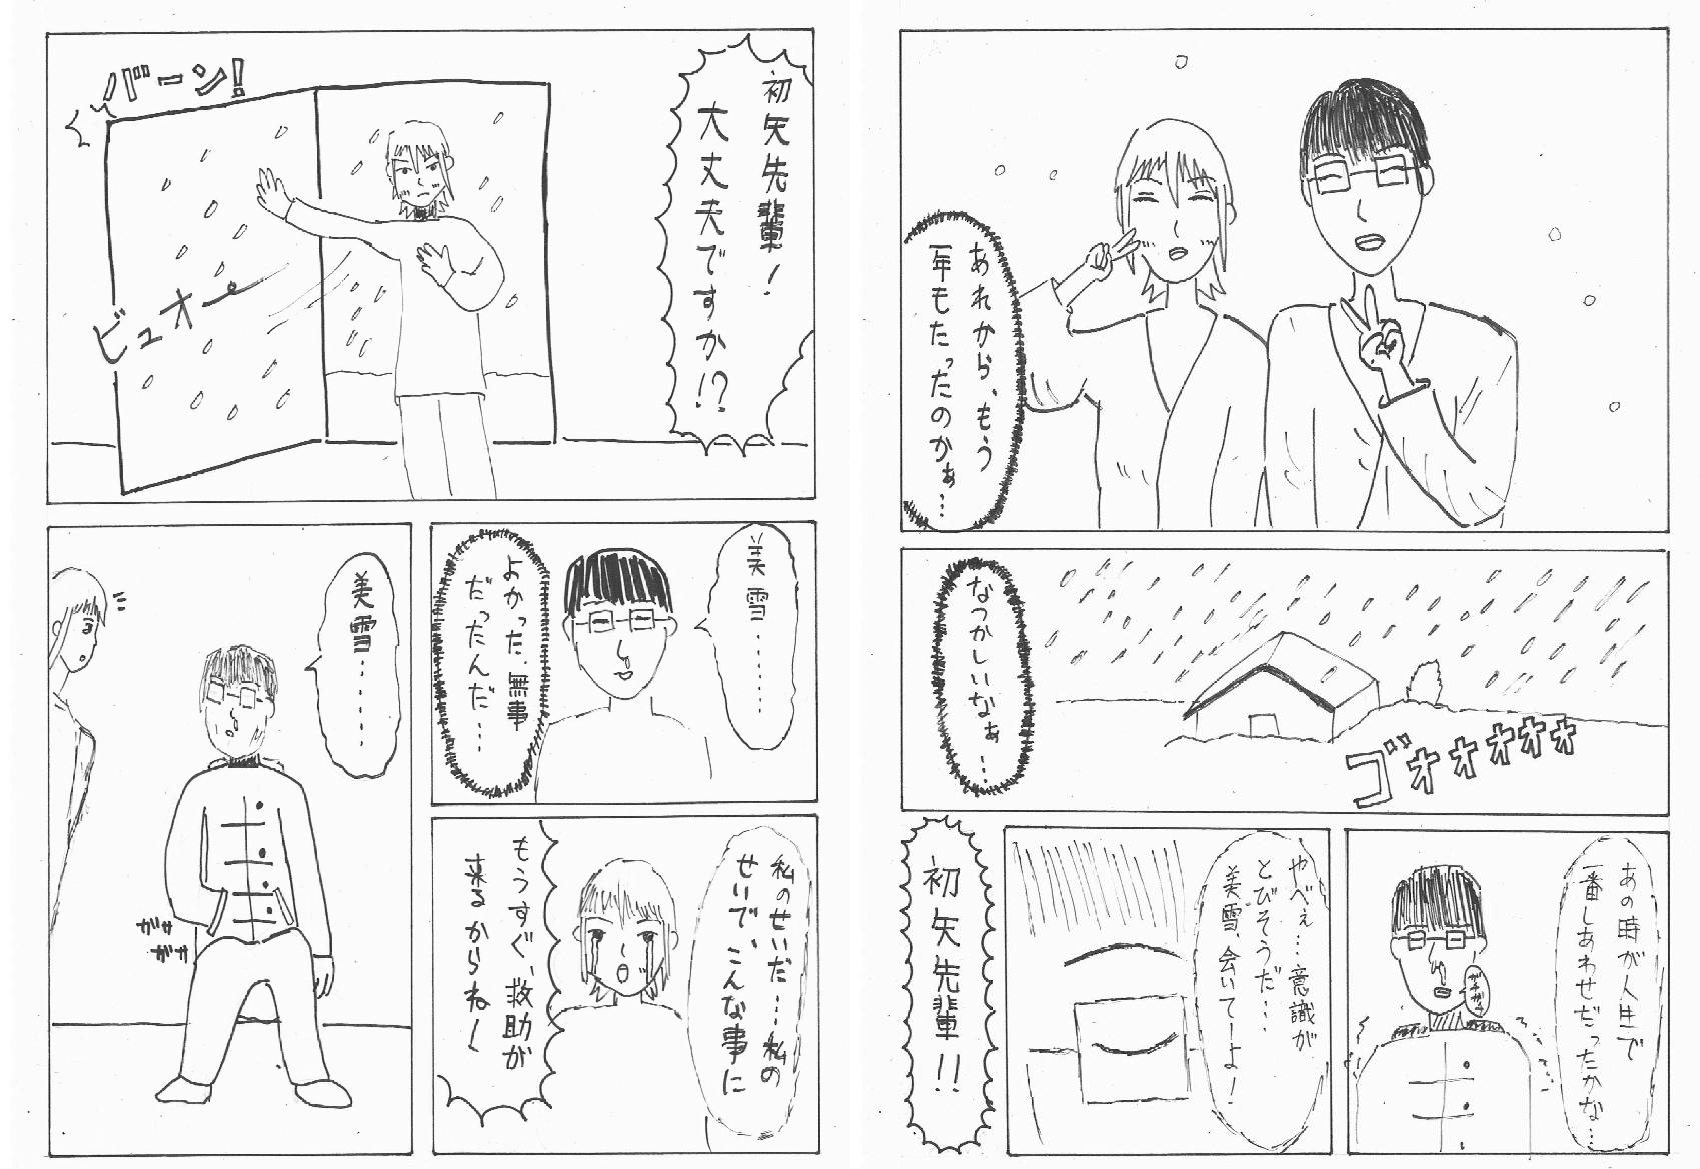 あれから、もう
一年もたったのかぁ…
なつかしいなぁ…
ゴォォォォォ
あの時が人生で
一番しあわせだったかな…
ガチガチ
やべぇ…意識が
とびそうだ…
美雪、会いてーよ！
初矢先輩！！
バーン！
初矢先輩！
大丈夫ですか！？
ビュオー
美雪……
よかった、無事
だったんだ…
私のせいだ…私の
せいで、こんな事に
もうすぐ、救助が
来るからねー
美雪……
ガサ
ガサ